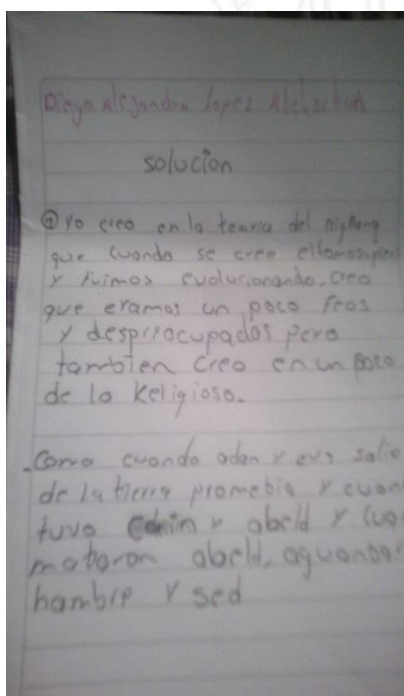 Diego alejandro lopez
solucion
① Yo creo en la teoria del BigBang
que cuando se creo el homosapien
y fuimos evolucionando, creo
que eramos un poco feos
y despreocupados pero
tambien creo en un poco
de lo Religioso.
.Como cuando adan y eva salio
de la tierra prometia y cuan
tuvo Cain y abeld y cua
mataron abeld, aguantar
hambre y sed